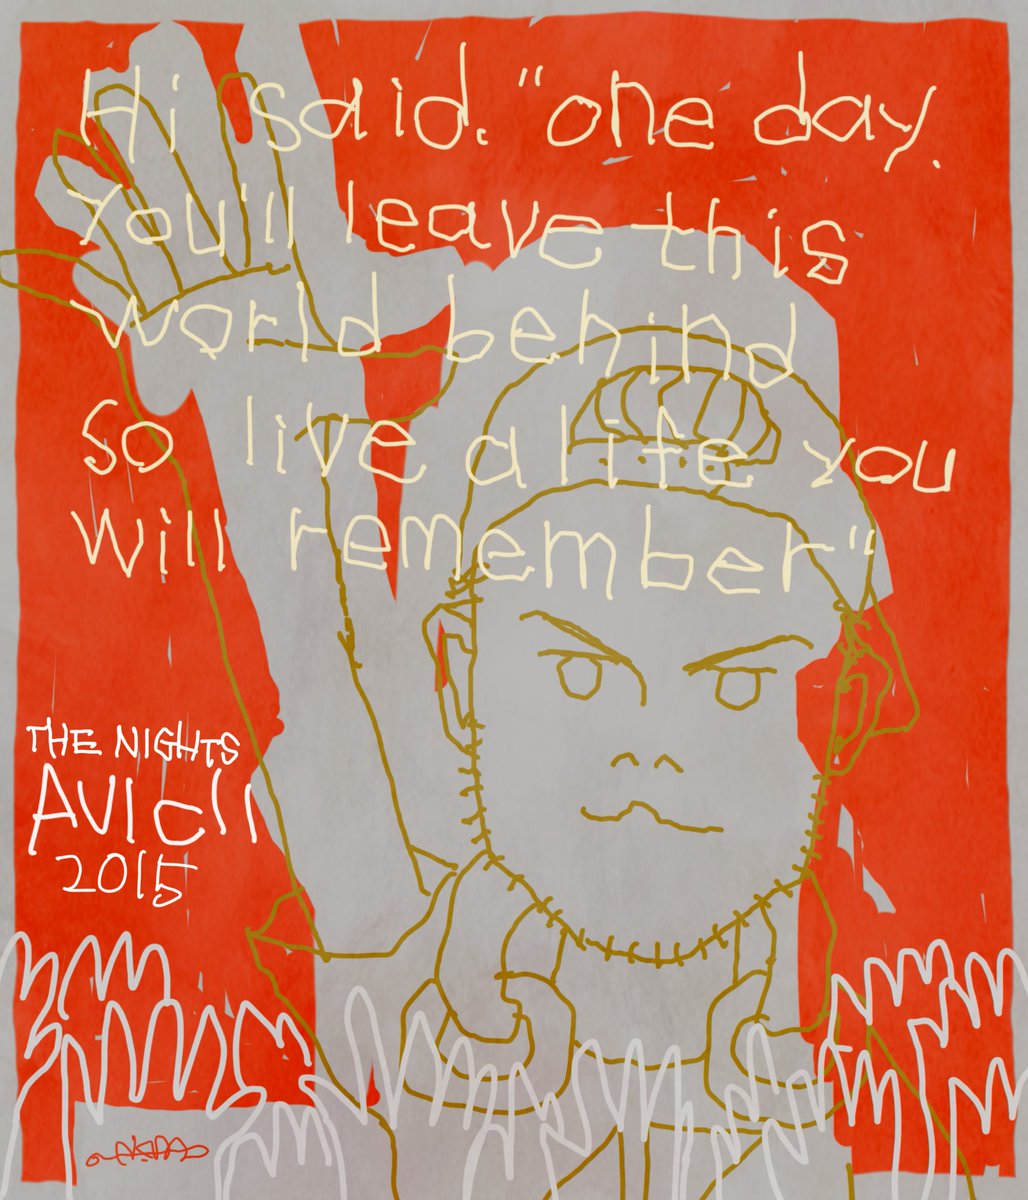 Hi said. "one day.
You'll leave this
world behind
So live a life you
will remember"
THE NIGHTS
AVICII
2015